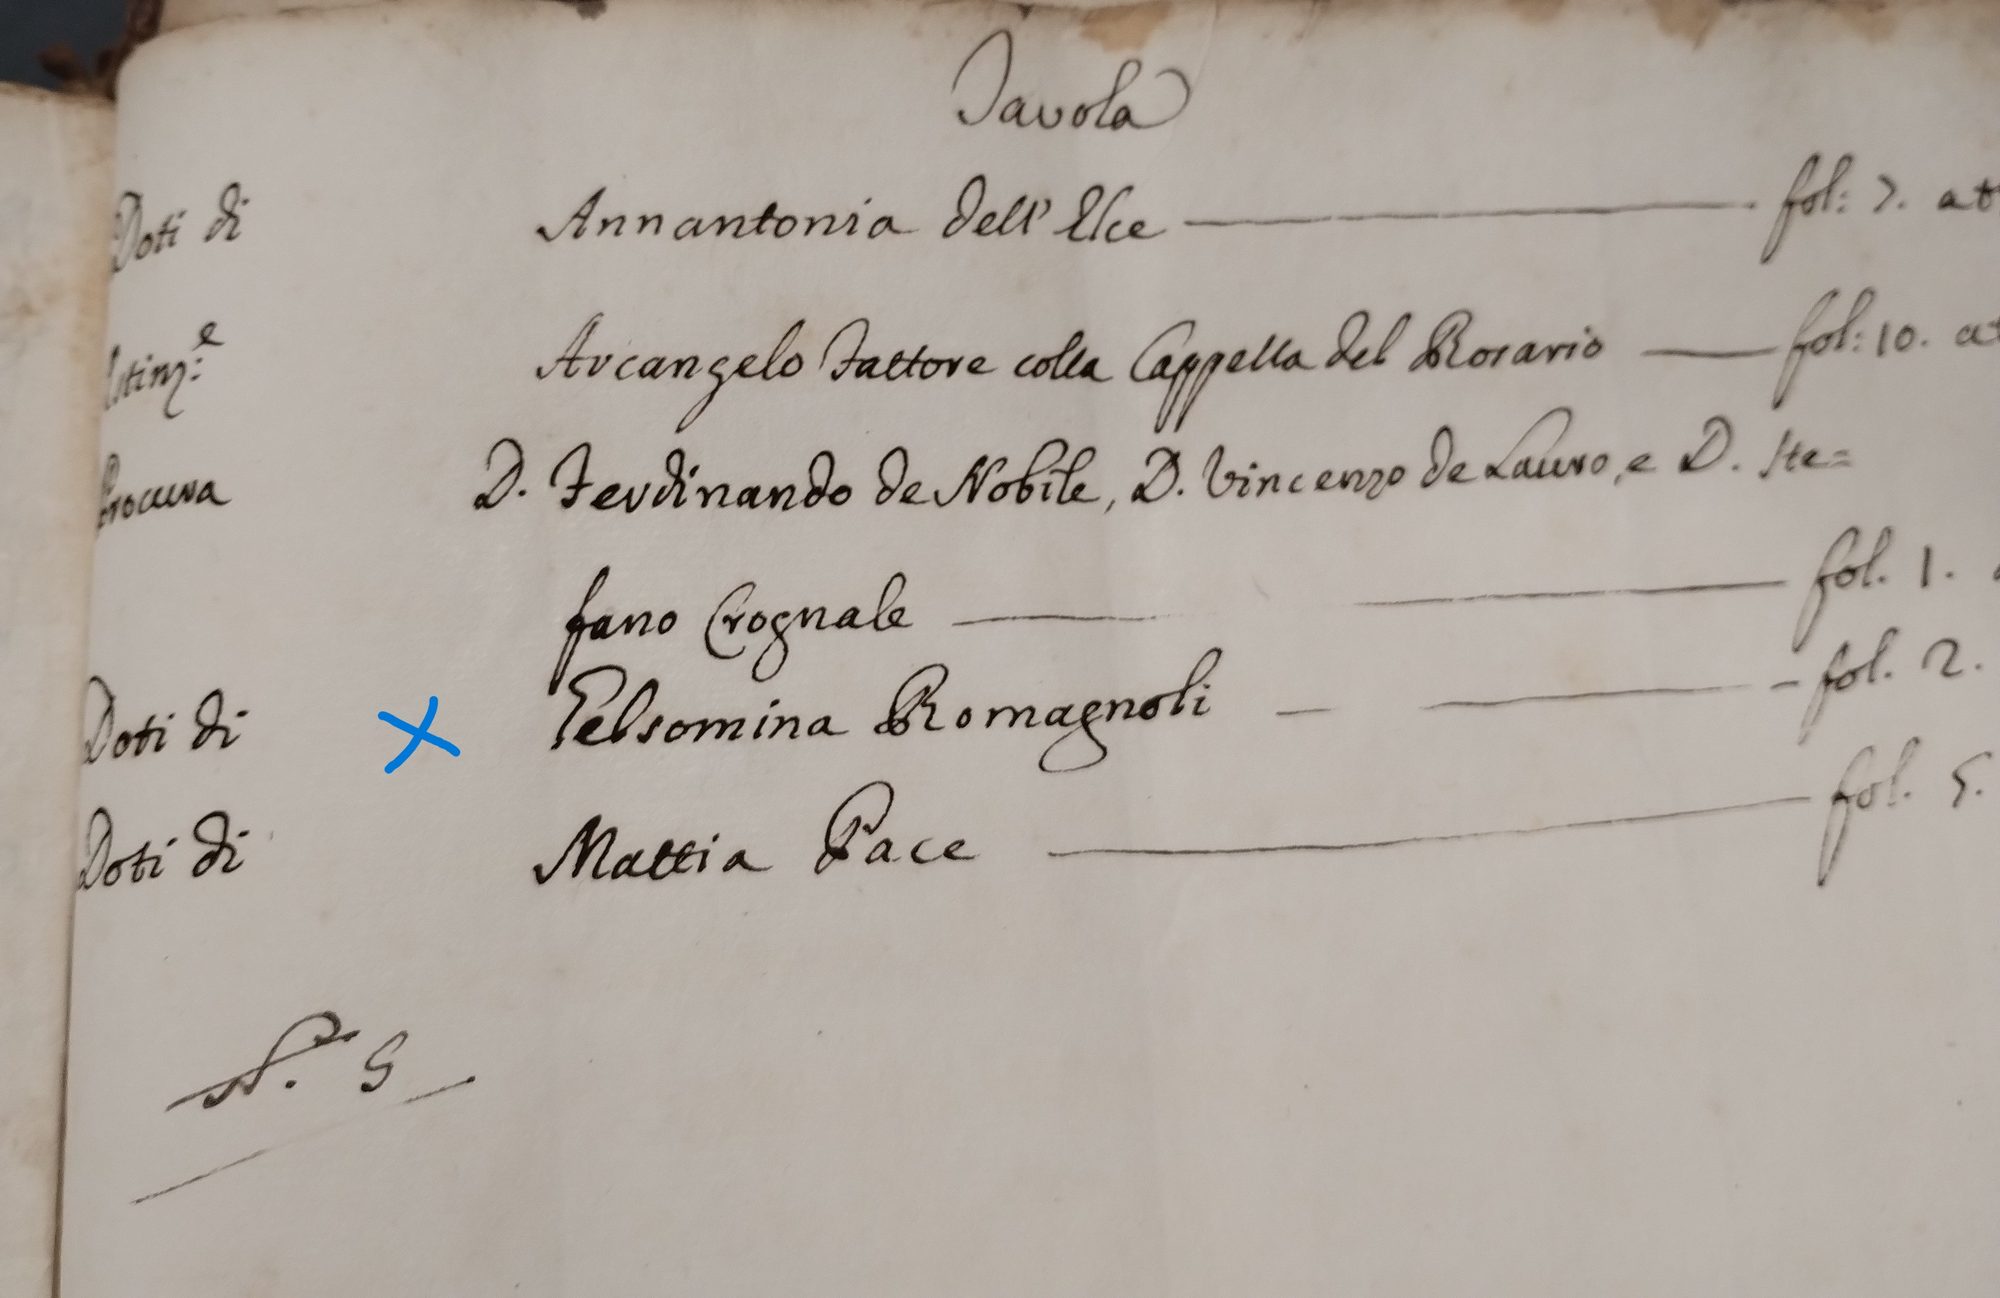 Tavola
Doti di Annantonia dell'Elce fol: 7. at
Istinz:e Arcangelo Fattore colla Cappella del Rosario fol: 10. at
Procura D. Ferdinando de Nobile, D. Vincenzo de Lauro, e D. Ste=
fano Crognale fol. 1.
Doti di Felsomina Romagnoli fol. 2.
Doti di Mattia Pace fol. 5.
N.º 5